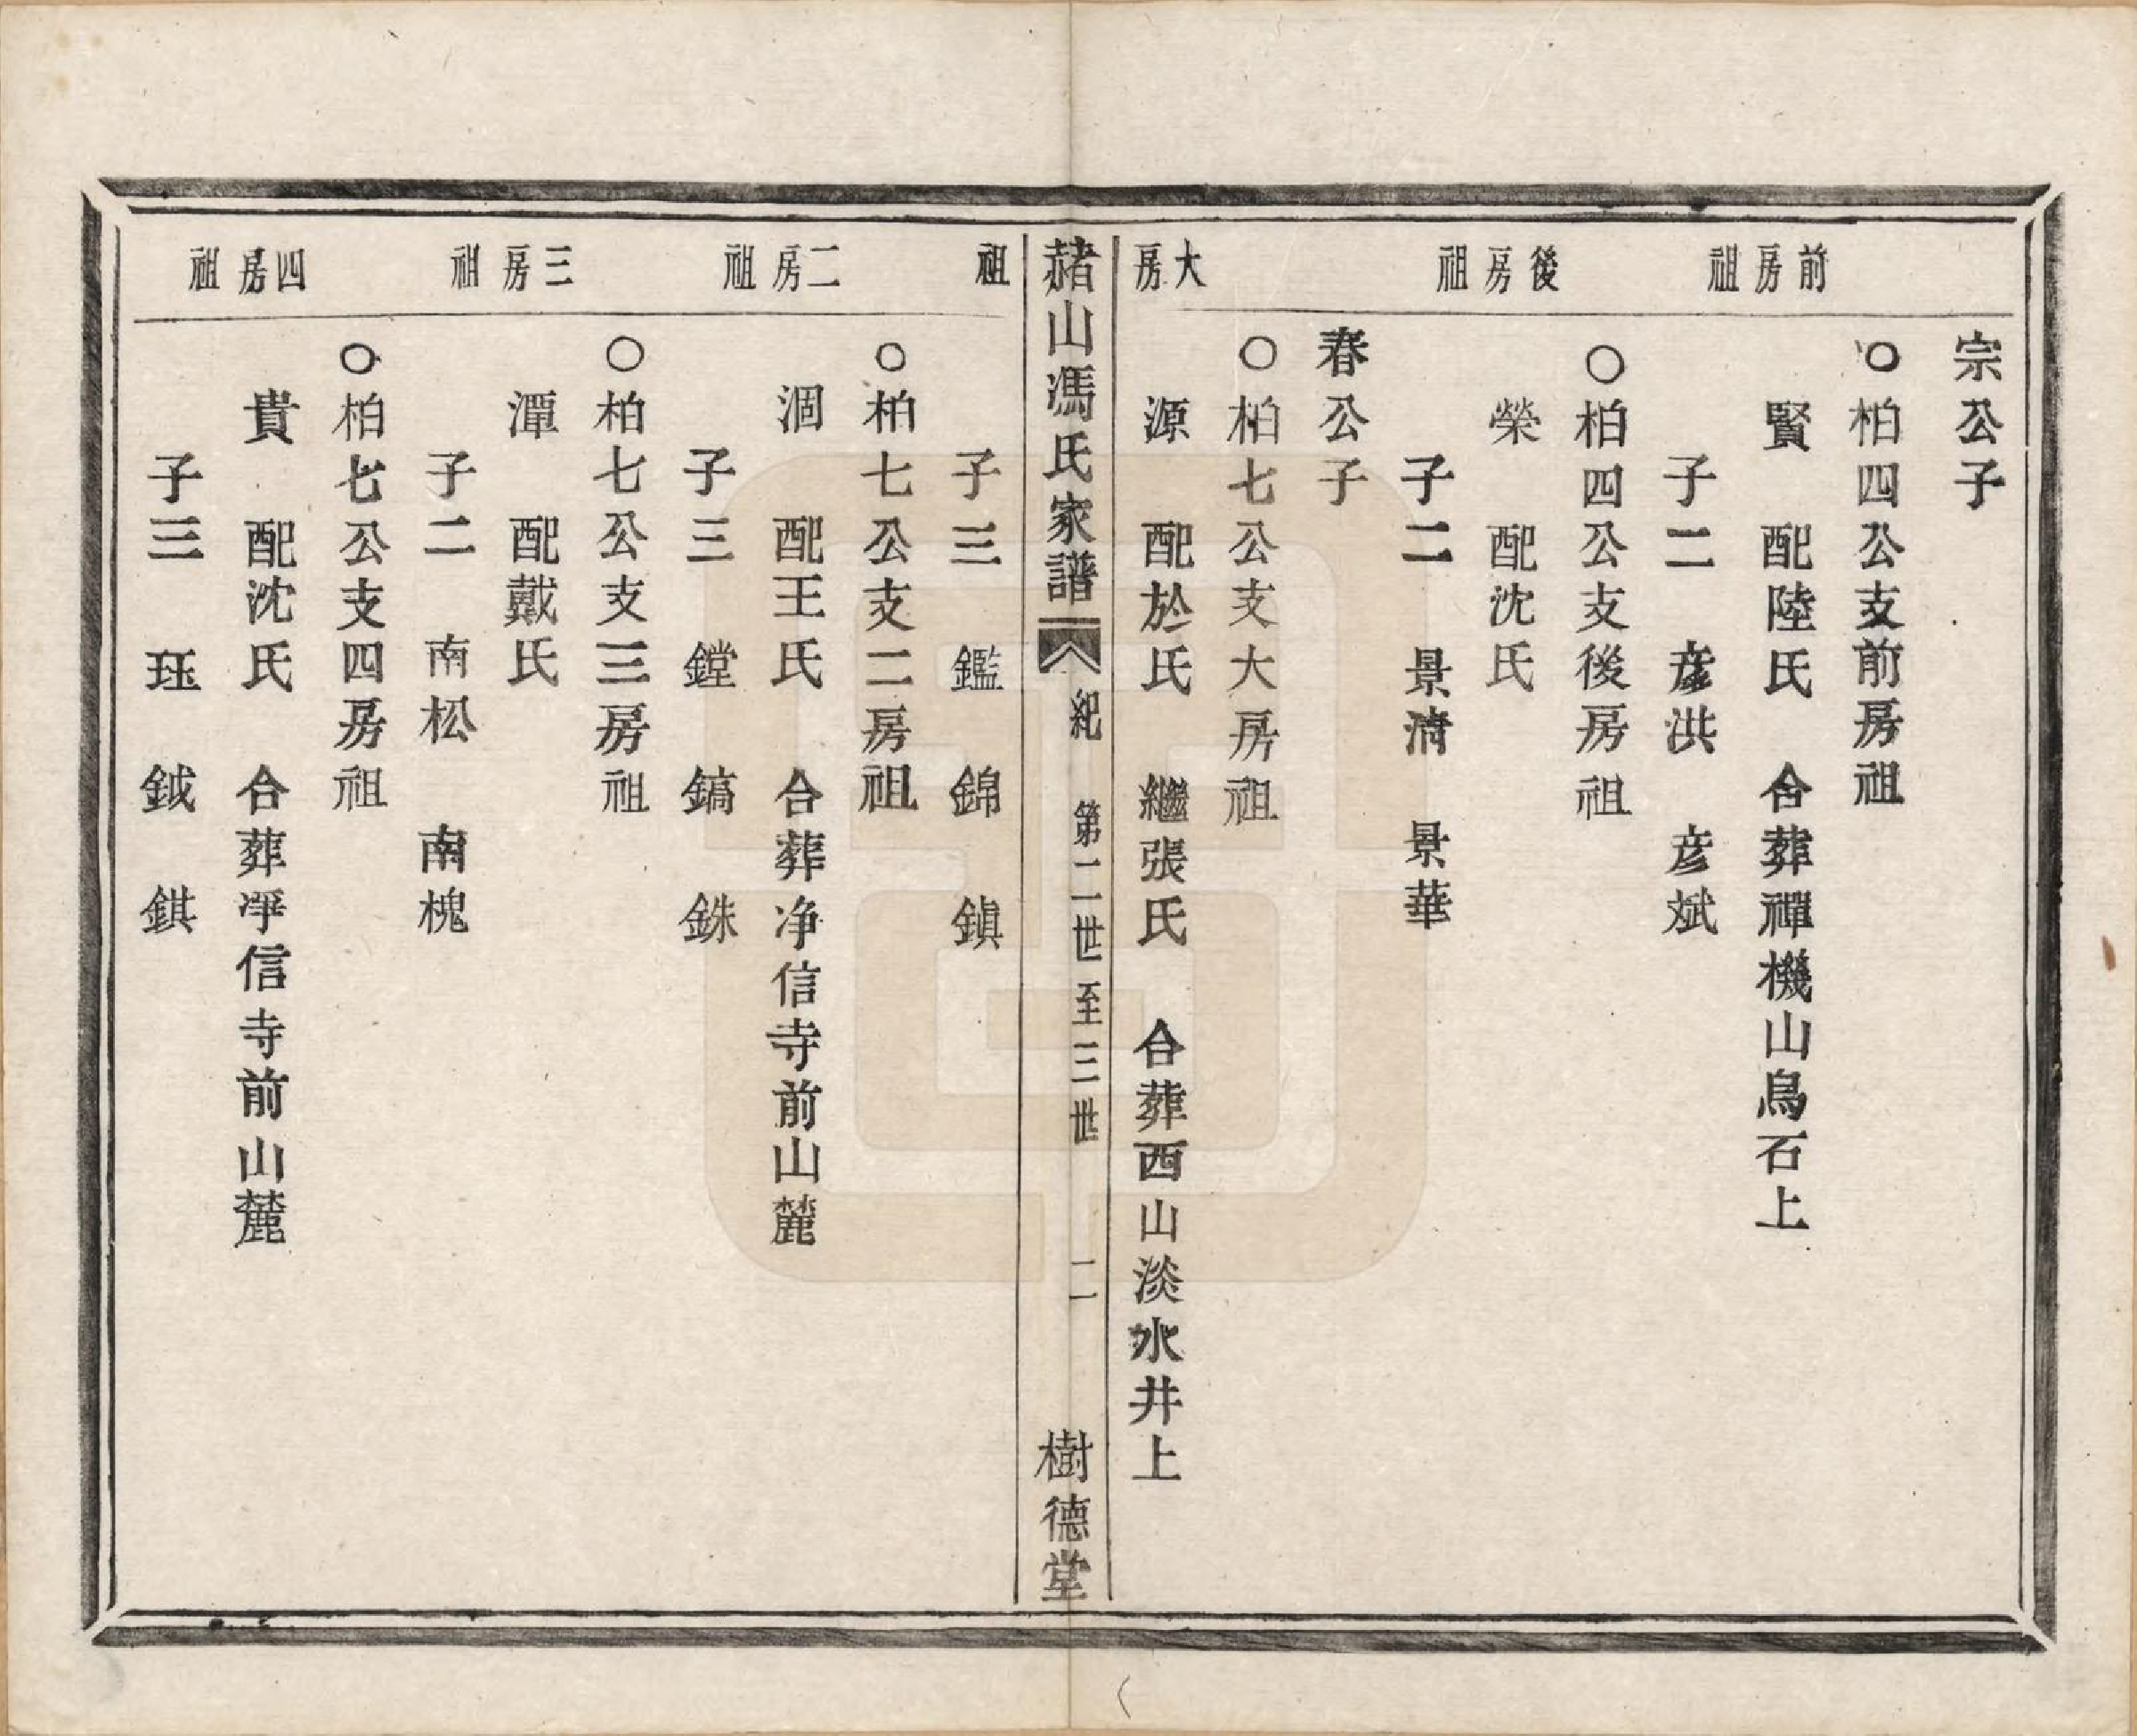 前房祖
後房祖
大房
宗公子
○柏四公支前房祖
賢　配陸氏　合葬禪機山鳥石上
子二　彥洪　彥斌
○柏四公支後房祖
榮　配沈氏
子二　景清　景華
春公子
○柏七公支大房祖
源　配於氏　繼張氏　合葬西山淡水井上
赭山馮氏家譜　紀　第二世至三世　二　樹德堂
祖
二房祖
三房祖
四房祖
子三　鑑　錦　鎮
○柏七公支二房祖
涸　配王氏　合葬净信寺前山麓
子三　鏜　鎬　銖
○柏七公支三房祖
潭　配戴氏
子二　南松　南槐
○柏七公支四房祖
貴　配沈氏　合葬淨信寺前山麓
子三　珏　鉞　錤